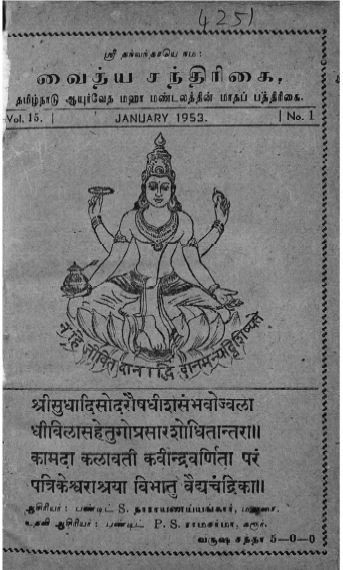 4251
ஸ்ரீ தன்வந்தரயே நம:
வைத்ய சந்திரிகை,
தமிழ்நாடு ஆயுர்வேத மஹா மண்டலத்தின் மாதப் பத்திரிகை.
Vol. 15. | JANUARY 1953. | No. 1
न हि जीवितदानाद्धि दानमन्यद्विशिष्यते
श्रीसुधादिसोदरौषधीशसंभवोज्वला
धीविलासहेतुगोप्रसारशोधितान्तरा॥
कामदा कलावती कवीन्द्रवर्णिता परं
पत्रिकेश्वराश्रया विभातु वैद्यचंद्रिका॥
ஆசிரியர்: பண்டிட் S. நாராயணய்யங்கார், மதுரை.
உதவி ஆசிரியர்: பண்டிட் P. S. ராமசர்மா, கரூர்.
வருஷ சந்தா 5-0-0